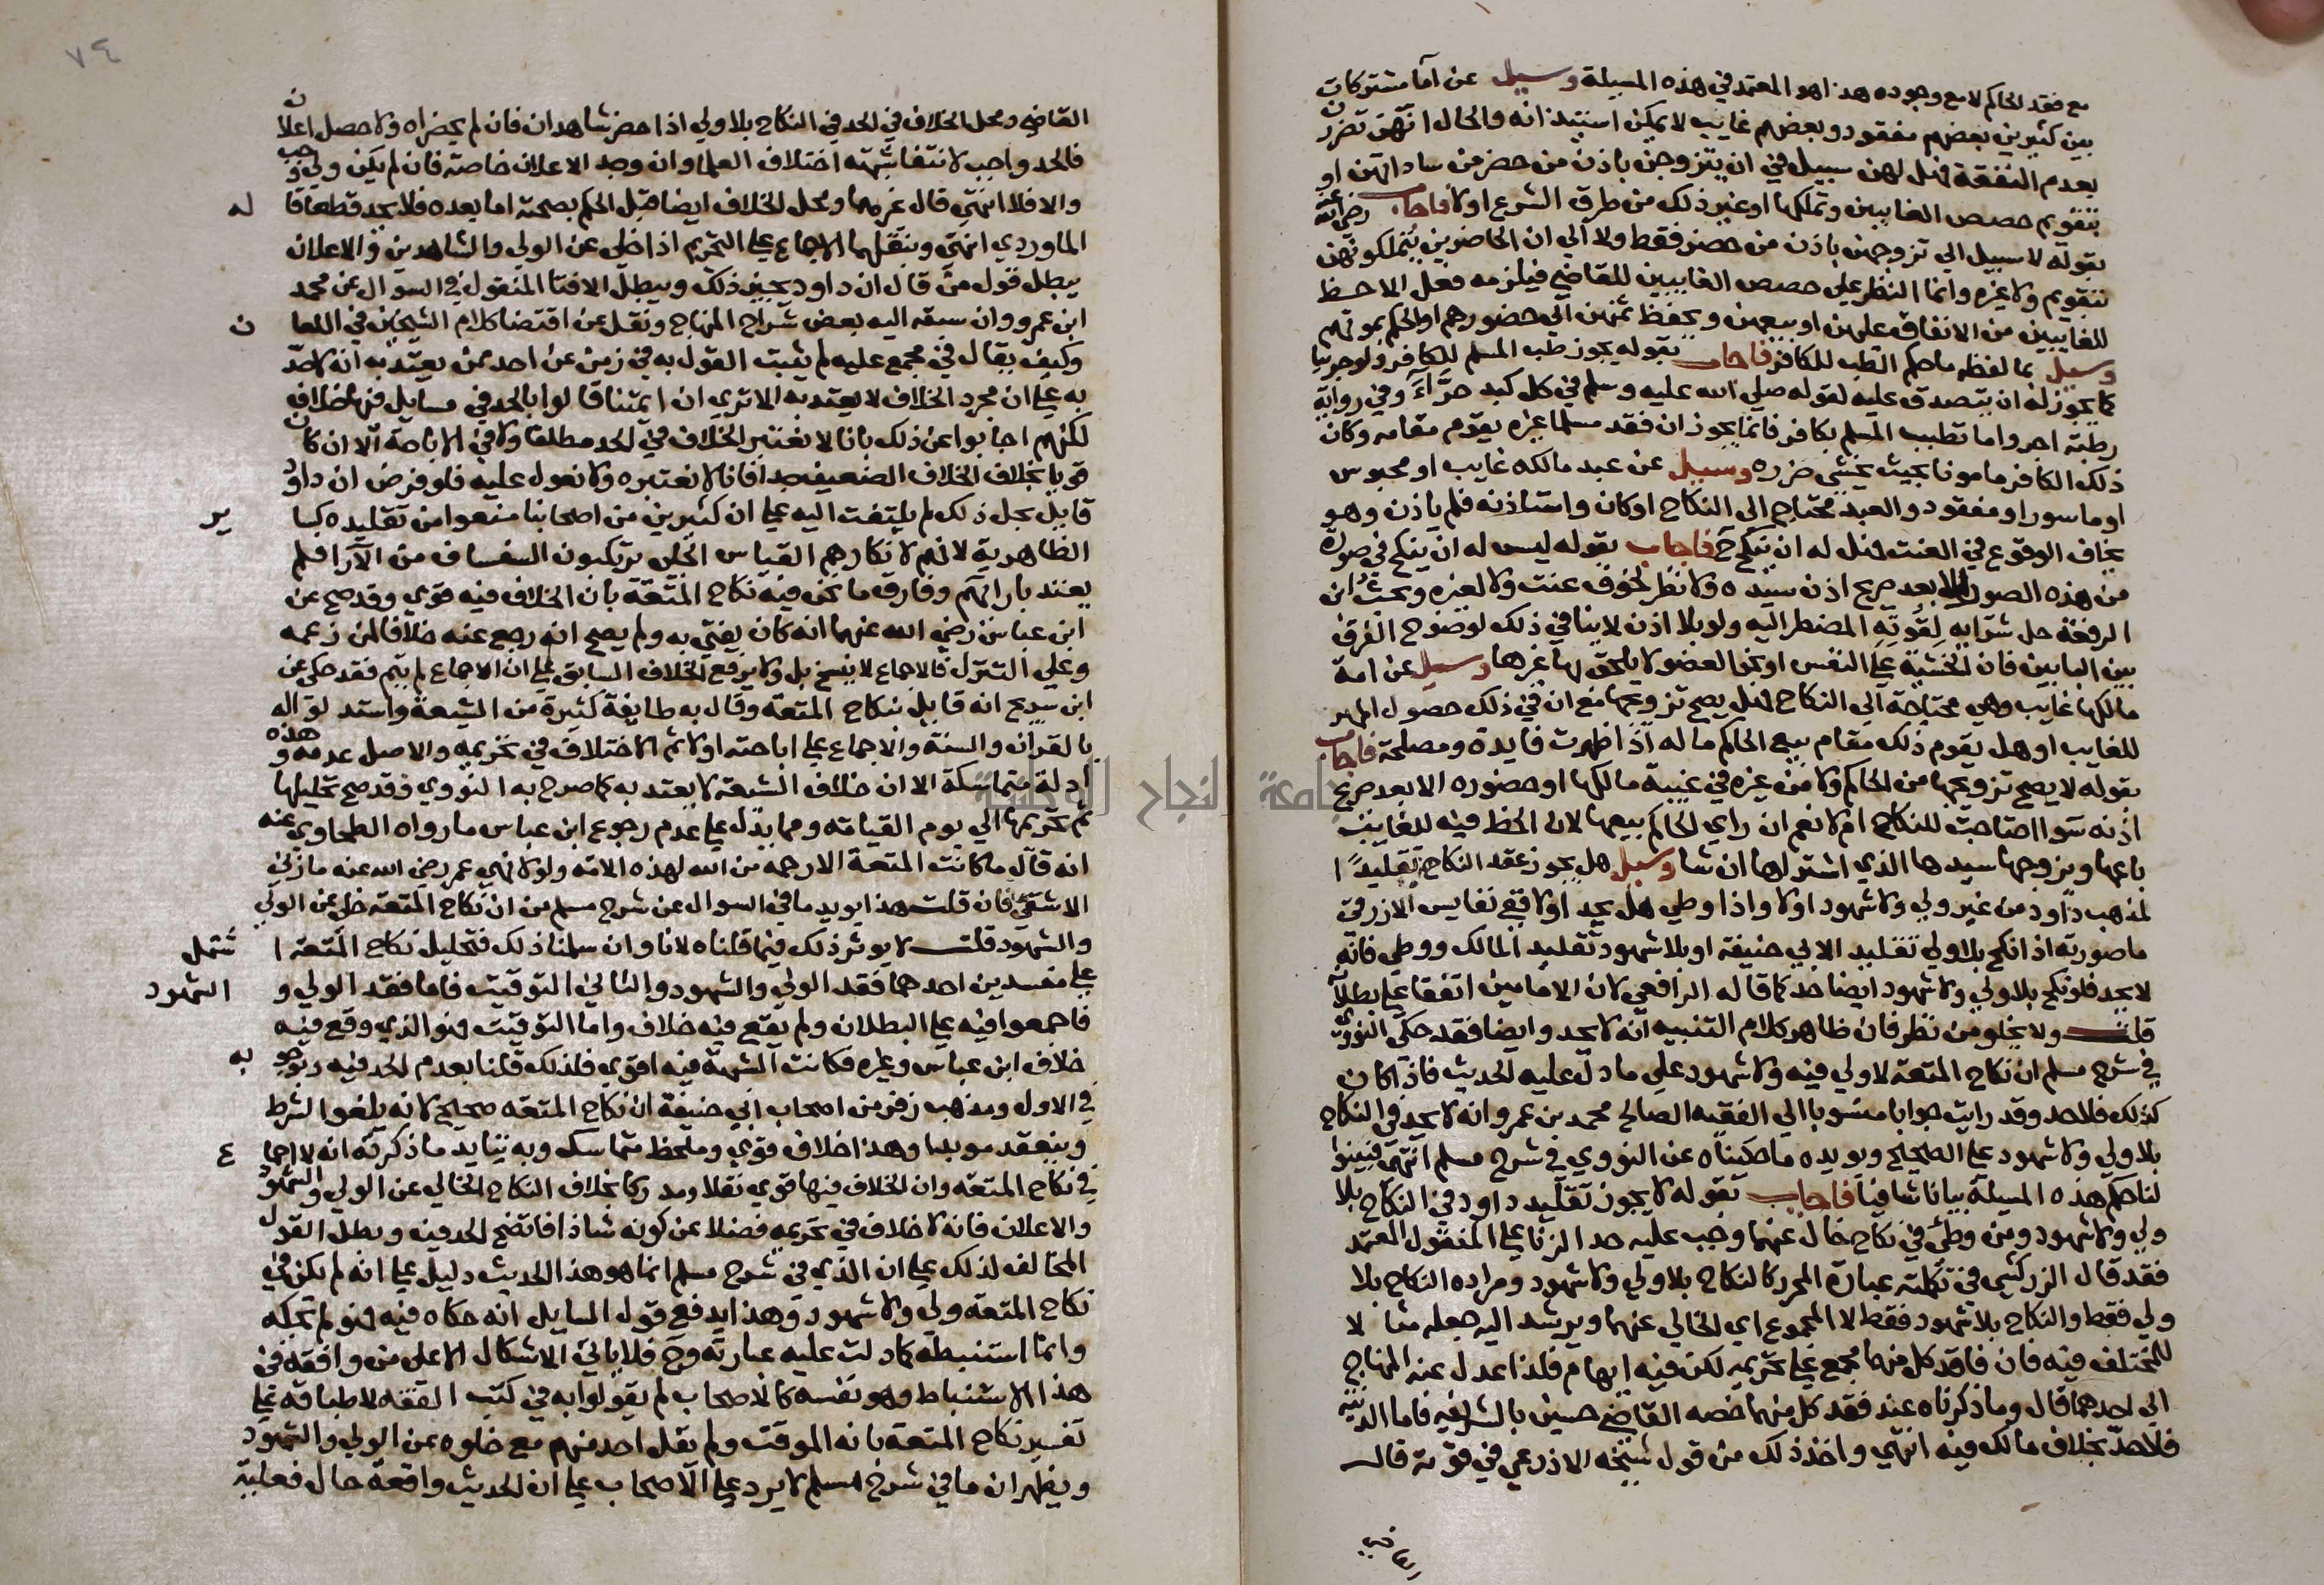 مع فقد الحاكم لا مع وجوده هذا هو المعتمد في هذه المسيلة وسيل عن آما مشتركات
بين كثيرين بعضهم مفقود وبعضهم غايب لا يمكن استيذانه والحال انهن تضررن
بعدم النفقة فهل لهن سبيل في ان يتزوجن باذن من حضر من ساداتهن او
بتقويم حصص الغايبين وتملكها او غير ذلك من طرق الشرع اولا فاجاب رضي الله عنه
بقوله لا سبيل الى تزوجهن باذن من حضر فقط ولا الى ان الحاضرين يتملكونهن
بتقويم ولا غيره وانما النظر على حصص الغايبين للقاضي فيلزمه فعل الاحظ
للغايبين من الانفاق عليهن او بيعهن وبحفظ ثمنهن الى حضورهم او الحكم بموتهم
وسيل بما لفظه ما حكم الطب للكافر فاجاب بقوله يجوز طب المسلم للكافر ولو حربيا
كما يجوز له ان يتصدق عليه لقوله صلى الله عليه وسلم في كل كبد حرَّآء وفي رواية
رطبة اجر واما تطبب المسلم بكافر فانما يجوز ان فقد مسلما غيره يقوم مقامه وكان
ذلك الكافر مامونا بحيث يخشى ضرره وسيل عن عبد مالكه غايب او محبوس
او ماسور او مفقود والعبد محتاج الى النكاح او كان واستاذنه فلم ياذن وهو
يخاف الوقوع في العنت فهل له ان ينكح ح فاجاب بقوله ليس له ان ينكح في صورة
من هذه الصور الا بعد صريح اذن سيده ولا نظر لخوف عنت ولا لغيره وبحث ابن
الرفعة حل شرابه لقوته المضطر اليه ولو بلا اذن لا ينافي ذلك لوضوح الفرق
بين البابين فان الخشية على النفس او نحو العضو لا يلحق بها غيرها وسيل عن امة
مالكها غايب وهي محتاجة الى النكاح فهل يصح تزويجها مع ان في ذلك حصول المهر
للغايب او هل يقوم ذلك مقام بيع الحاكم ماله اذا ظهرت فايدة ومصلحة فاجاب
بقوله لا يصح تزويجها من الحاكم ولا من غيره في غيبة مالكها او حضوره الا بعد صريح
اذنه سوا احتاجت للنكاح ام لا نعم ان راي الحاكم بيعها لان الحظ فيه للغايب
باعها ويزوجها سيدها الذي اشتراها ان شا وسيل هل يجوز عقد النكاح تقليدًا
لمذهب داود من غير ولي ولا شهود اولا واذا وطي هل يحد اولا ففي نفايس الازرقي
ما صورته اذا نكح بلا ولي تقليدا لابي حنيفة او بلا شهود تقليدا لمالك ووطي فانه
لا يحد فلو نكح بلا ولي ولا شهود ايضا حد كما قاله الرافعي لان الامامين اتفقا على بطلانه
قلت ولا يخلو من نظر فان ظاهر كلام التنبيه انه لا يحد وايضا فقد حكى النووي
في شرح مسلم ان نكاح المتعة لا ولي فيه ولا شهود على ما دل عليه الحديث فاذا كان
كذلك فلا حد وقد رايت جوابا منسوبا الى الفقيه الصالح محمد بن عمرو انه لا يحد في النكاح
بلا ولي ولا شهود على الصحيح ويويده ما حكيناه عن النووي في شرح مسلم انتهى فبينوا
لنا حكم هذه المسيلة بيانا شافيا فاجاب بقوله لا يجوز تقليد داود في النكاح بلا
ولي ولا شهود ومن وطئ في نكاح خال عنهما وجب عليه حد الزنا على المنقول المعتمد
فقد قال الزركشي في تكملته عبارة المحرر كالنكاح بلا ولي ولا شهود ومراده النكاح بلا
ولي فقط والنكاح بلا شهود فقط لا المجموع اي الخالي عنهما ويرشد اليه جعله مثالا
للمختلف فيه فان فاقد كل منهما مجمع على تحريمه لكن فيه ايهام فلذا عدل عنه المنهاج
الى احدهما قال وما ذكرناه عند فقد كل منهما خصه القاضي حسين بالشريفه فاما الدنية
فلا حد بخلاف مالك فيه انتهى واخذ ذلك من قول شيخه الاذرعي في قوته قال
القاضي ومحل الخلاف في الحد في النكاح بلا ولي اذا حضر شاهدان فان لم يحضراه ولا حصل اعلان
فالحد واجب لانتفا شبهة اختلاف العلما وان وجد الاعلان خاصة فان لم يكن ولي وجب
والا فلا انتهى قال غيرهما ومحل الخلاف ايضا قبل الحكم بصحته اما بعده فلا يحد قطعا قاله
الماوردي انتهى وبنقلهما الاجماع على التحريم اذا خلى عن الولي والشاهدين والاعلان
يبطل قول من قال ان داود يجيز ذلك ويبطل الافتا المنقول في السوال عن محمد
ابن عمرو وان سبقه اليه بعض شراح المنهاج ونقل عن اقتضا كلام الشيخين في اللعان
وكيف يقال في مجمع عليه لم يثبت القول به في زمن عن احد ممن يعتد به انه لا حد
به على ان مجرد الخلاف لا يعتد به الا ترى ان ايمتنا قالوا بالحد في مسايل فيها خلاف
لكنهم اجابوا عن ذلك بانا لا نعتبر الخلاف في الحد مطلقا ولا في الاباحة الا ان كان
قويا بخلاف الخلاف الضعيف جدا فانا لا نعتبره ولا نعول عليه فلو فرض ان داود
قايل بحل ذلك لم يلتفت اليه على ان كثيرين من اصحابنا منعوا من تقليده كساير
الظاهرية لانهم لانكارهم القياس الجلي يرتكبون السفساف من الآرا فلم
يعتد بارائهم وفارق ما نحن فيه نكاح المتعة بان الخلاف فيه قوي وقد صح عن
ابن عباس رضي الله عنهما انه كان يفتي به ولم يصح انه رجع عنه خلافا لمن زعمه
وعلى التنزل فالاجماع لا ينسخ بل ولا يرفع الخلاف السابق على ان الاجماع لم يتم فقد حكى عن
ابن سريج انه قايل بنكاح المتعة وقال به طايفة كثيرة من الشيعة واستدلوا له
بالقران والسنة والاجماع على اباحته اولا ثم الاختلاف في تحريمه والاصل عدمه وهذه
ادلة متماسكة الا ان خلاف الشيعة لا يعتد به كما صرح به النووي وقد صح تحليلها
ثم تحريمها الى يوم القيامة ومما يدل على عدم رجوع ابن عباس ما رواه الطحاوي عنه
انه قال ما كانت المتعة الا رحمة من الله لهذه الامة ولولا نهي عمر رضي الله عنه ما زنى
الا شقي فان قلت هذا يويد ما في السوال عن شرح مسلم من ان نكاح المتعة خلى عن الولي
والشهود قلت لا يوثر ذلك فيما قلناه لانا وان سلمنا ذلك فتحليل نكاح المتعة اشتمل
على مفسدين احدهما فقد الولي والشهود والثاني التوقيت فاما فقد الولي والشهود
فاجمعوا فيه على البطلان ولم يقع فيه خلاف واما التوقيت فهو الذي وقع فيه
خلاف ابن عباس وغيره فكانت الشبهة فيه اقوى فلذلك قلنا بعدم الحد فيه وبوجوبه
في الاول ومذهب زفر من اصحاب ابي حنيفة ان نكاح المتعة صحيح لانه يلغو الشرط
وينعقد موبدا وهذا خلاف قوي وملحظ متماسك وبه يتايد ما ذكرته انه لا اجماع
في نكاح المتعة وان الخلاف فيها قوي نقلا ومدركا بخلاف النكاح الخالي عن الولي والشهود
والاعلان فانه لا خلاف في تحريمه فضلا عن كونه شاذا فاتضح الحد فيه وبطل القول
المخالف لذلك على ان الذي في شرح مسلم انما هو هذا الحديث دليل على انه لم يكن في
نكاح المتعة ولي ولا شهود وهذا يدفع قول السايل انه حكاه فيه فهو لم يحكه
وانما استنبطه كما دلت عليه عبارته وح فلا ياتي الاشكال الا على من وافقه في
هذا الاستنباط وهو نفسه كالاصحاب لم يقولوا به في كتب الفقه لاطباقه على
تفسير نكاح المتعة بانه الموقت ولم يقل احد منهم مع خلوه عن الولي والشهود
ويظهر ان ما في شرح مسلم لا يرد على الاصحاب على ان الحديث واقعة حال فعلية
٧٤
جامعة النجاح الوطنية